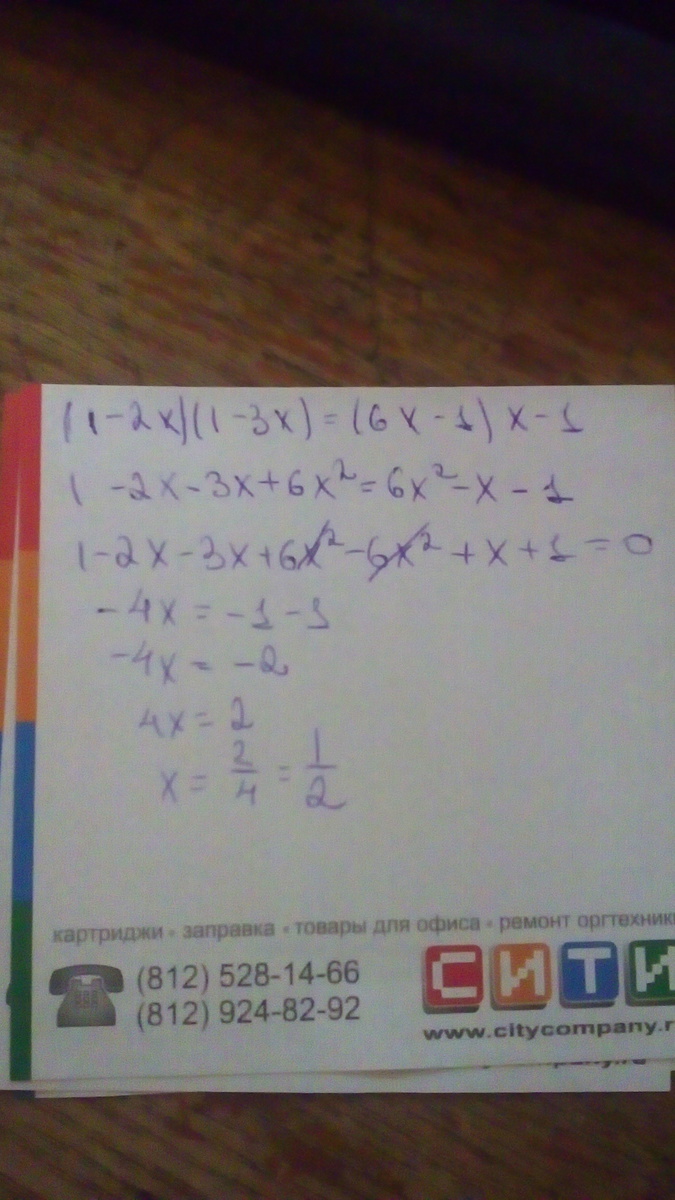 (1-2x)(1-3x)=(6x-1)x-1
1-2x-3x+6x²=6x²-x-1
1-2x-3x+6x²-6x²+x+1=0
-4x=-1-1
-4x=-2
4x=2
x=2/4=1/2
картриджи • заправка • товары для офиса • ремонт оргтехники
(812) 528-14-66
(812) 924-82-92
СИТИ
www.citycompany.r